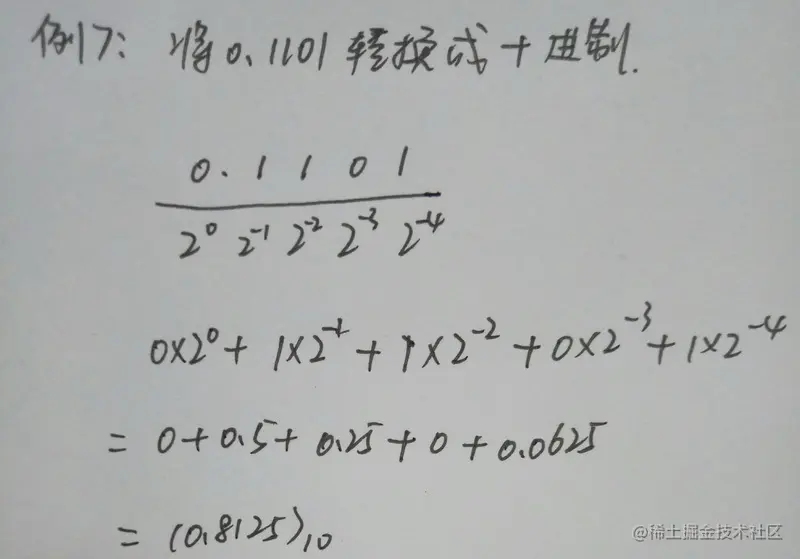 例17: 将0.1101转换成十进制.
0.1 1 0 1
2⁰ 2⁻¹ 2⁻² 2⁻³ 2⁻⁴
0×2⁰ + 1×2⁻¹ + 1×2⁻² + 0×2⁻³ + 1×2⁻⁴
= 0+0.5+0.25+0+0.0625
= (0.8125)₁₀
@稀土掘金技术社区